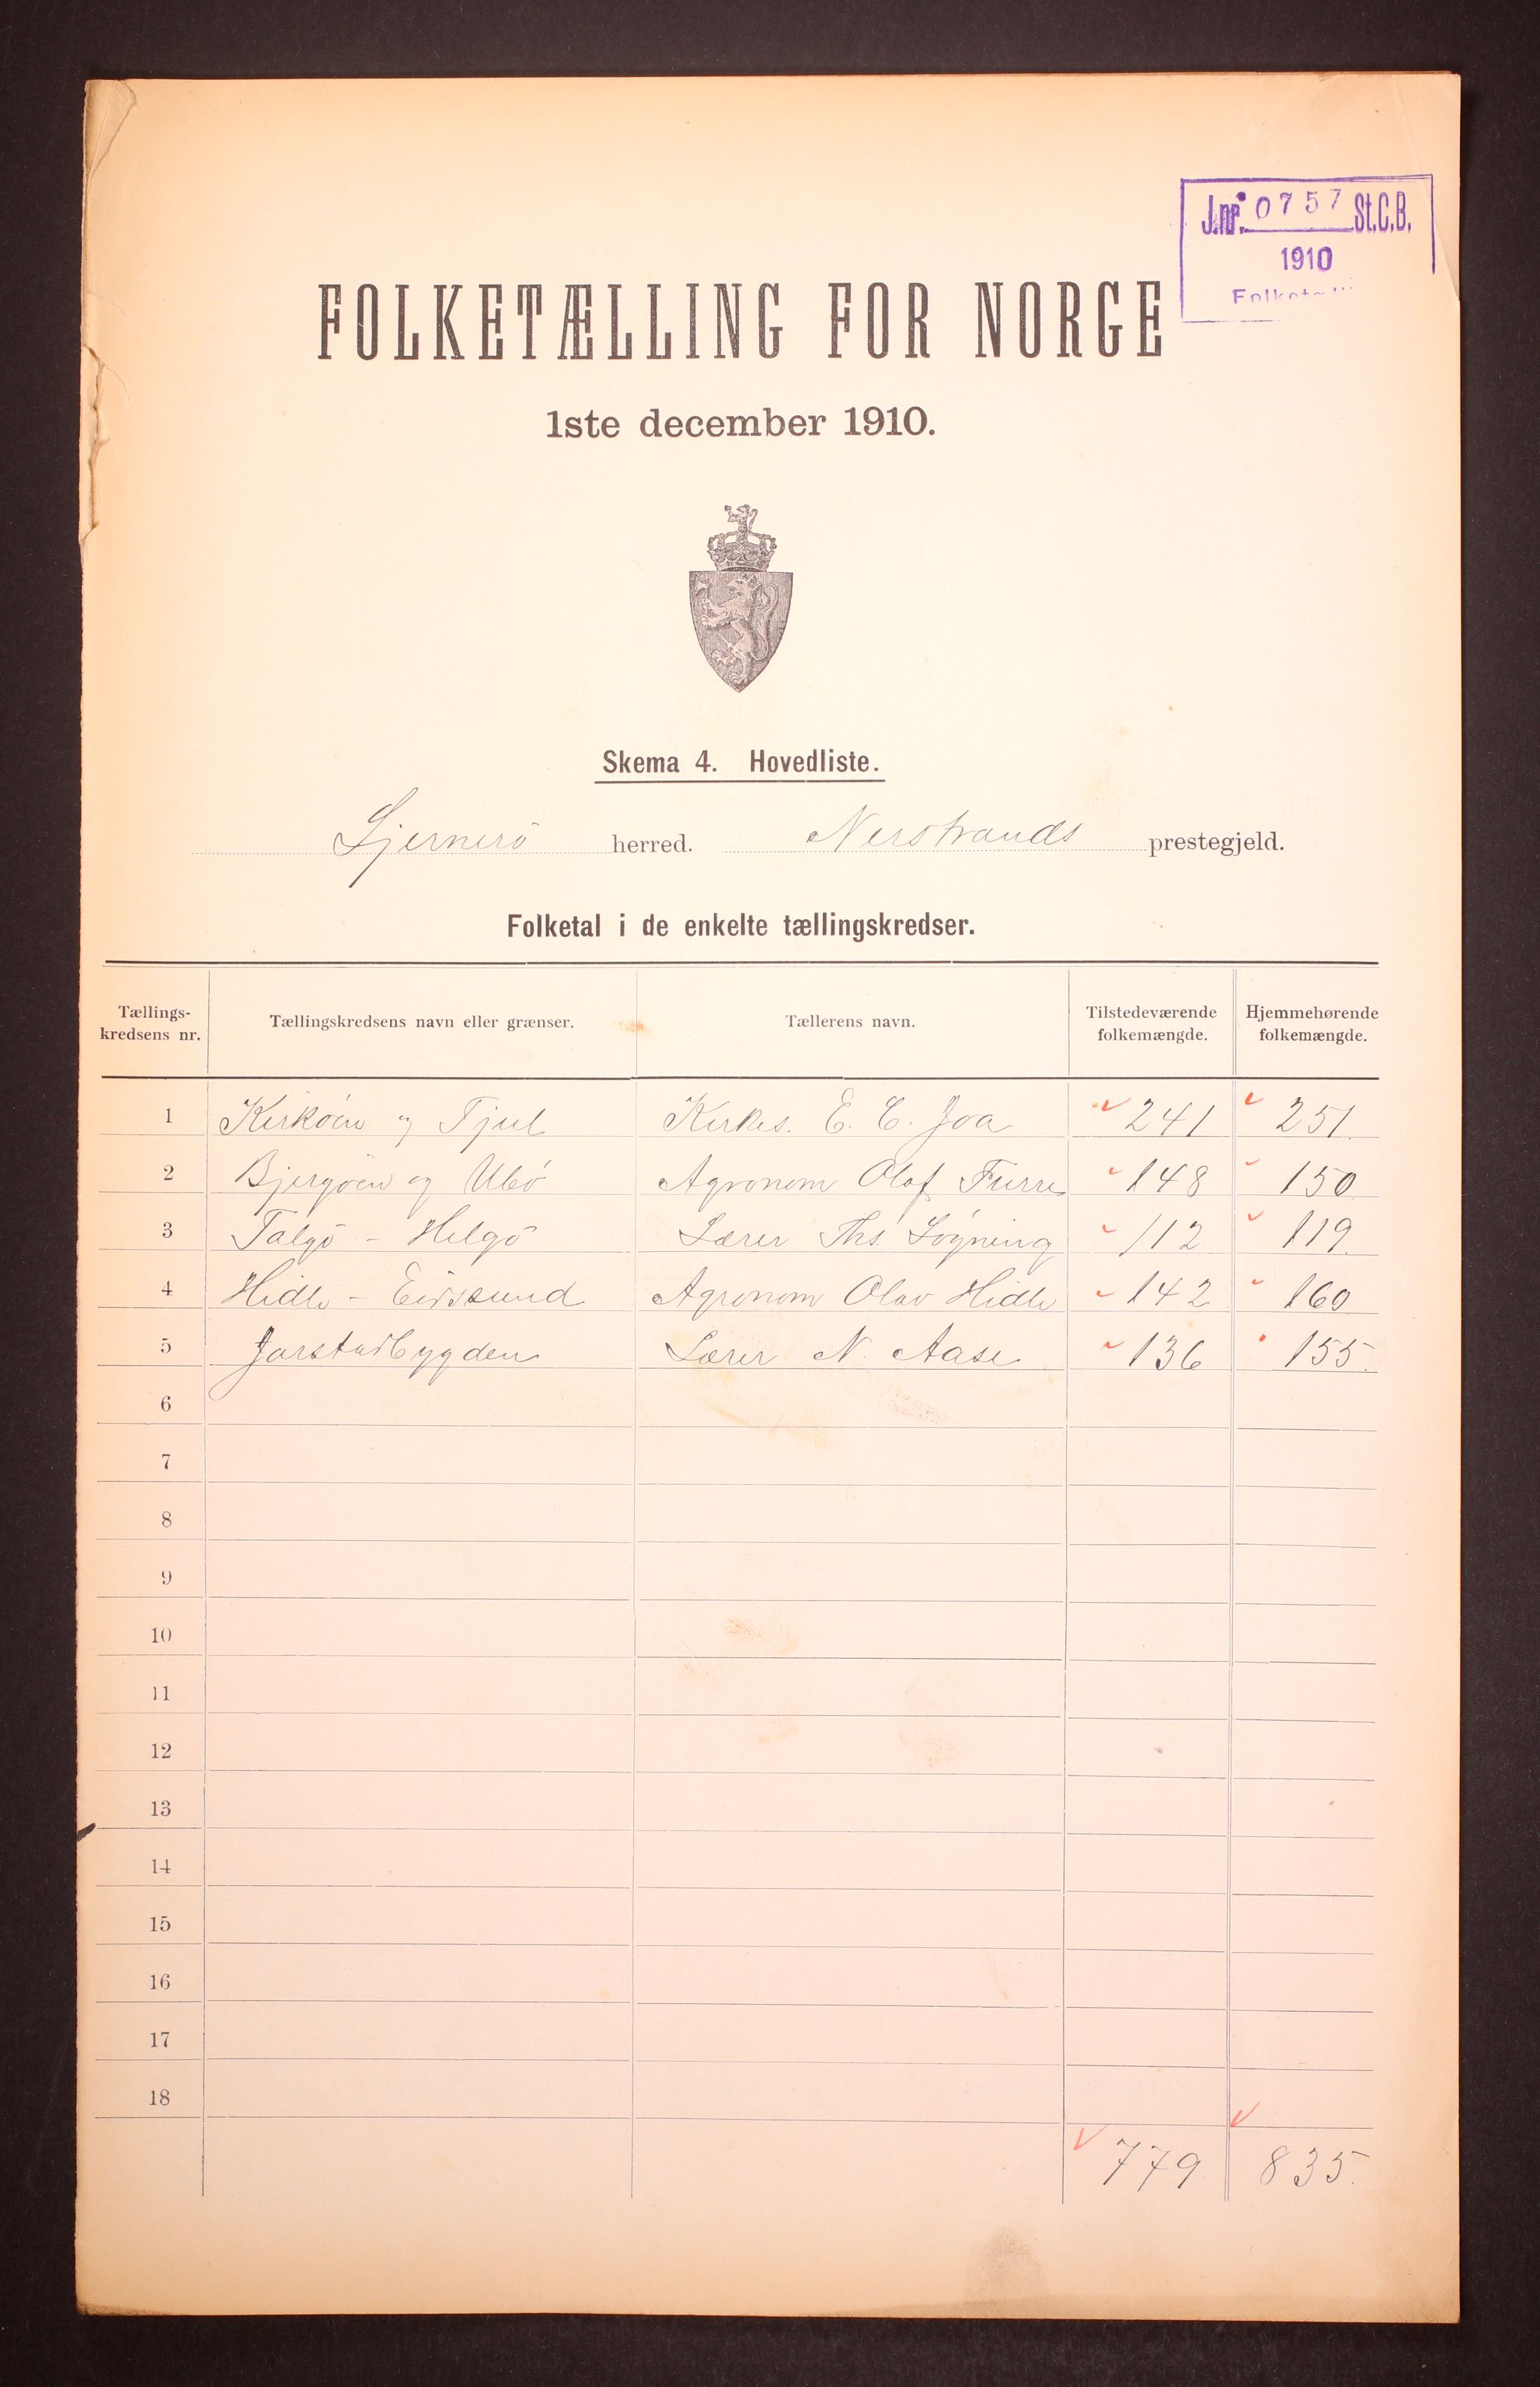 J.nr. 0757 St.C.B.
1910
FOLKETÆLLING FOR NORGE
1ste december 1910.
Skema 4. Hovedliste.
Sjernerö herred. Nerstrands prestegjeld.
Folketal i de enkelte tællingskredser.
Tællings-kredsens nr. Tællingskredsens navn eller grænser. Tællerens navn. Tilstedeværende folkemængde. Hjemmehørende folkemængde.
1 Kirköen og Tjul Kirkes. E. E. Joa 241 251.
2 Bjergöen og Ubö Agronom Olaf Furre 148 150
3 Talgö - Helgö Lærer Ths. Lögning 112 119.
4 Hidle - Eidssund Agronom Olav Hidle 142 160
5 Jorstadbygden Lærer N. Aase 136 155.
6
7
8
9
10
11
12
13
14
15
16
17
18
779 835.